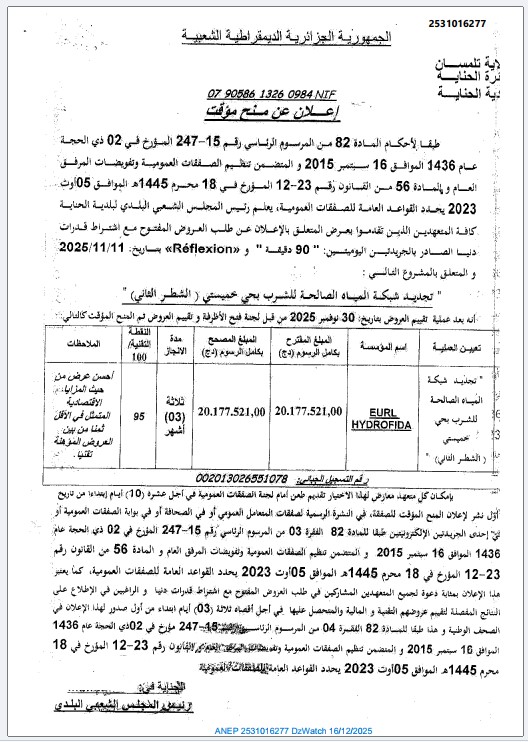 2531016277
الجمهورية الجزائرية الديمقراطية الشعبية
ولاية تلمسان
دائرة الحناية
بلدية الحناية
07 90586 1326 0984 NIF
إعلان عن منح مؤقت
طبقا لأحكام المادة 82 من المرسوم الرئاسي رقم 15–247 المؤرخ في 02 ذي الحجة
عام 1436 الموافق 16 سبتمبر 2015 و المتضمن تنظيم الصفقات العمومية وتفويضات المرفق
العام و المادة 56 من القانون رقم 23–12 المؤرخ في 18 محرم 1445هـ الموافق 05أوت
2023 يحدد القواعد العامة للصفقات العمومية، يعلم رئيس المجلس الشعبي البلدي لبلدية الحناية
كافة المتعهدين الذين تقدموا بعرض المتعلق بالإعلان عن طلب العروض المفتوح مع اشتراط قدرات
دنيا الصادر بالجريدتين اليوميتين: " 90 دقيقة " و «Réflexion» بتاريخ: 2025/11/11
و المتعلق بالمشروع التالي :
" تجديد شبكة المياه الصالحة للشرب بحي خميستي ( الشطر الثاني) "
أنه بعد عملية تقييم العروض بتاريخ: 30 نوفمبر 2025 من قبل لجنة فتح الأظرفة و تقييم العروض تم المنح المؤقت كالتالي:
تعيين العملية | اسم المؤسسة | المبلغ المقترح بكامل الرسوم (دج) | المبلغ المصحح بكامل الرسوم (دج) | مدة الانجاز | النقطة التقنية/ 100 | الملاحظات
" تجديد شبكة المياه الصالحة للشرب بحي خميستي ( الشطر الثاني) " | EURL HYDROFIDA | 20.177.521,00 | 20.177.521,00 | ثلاثة (03) أشهر | 95 | أحسن عرض من حيث المزايا الاقتصادية المتمثل في الأقل ثمنا من بين العروض المؤهلة تقنيا.
رقم التسجيل الجبائي: 002013026551078
بإمكان كل متعهد معارض لهذا الاختيار تقديم طعن أمام لجنة الصفقات العمومية في أجل عشرة (10) أيام إبتداءا من تاريخ
أول نشر لإعلان المنح المؤقت للصفقة، في النشرة الرسمية لصفقات المتعامل العمومي أو في الصحافة أو في بوابة الصفقات العمومية أو
في إحدى الجريدتين الإلكترونيتين طبقا للمادة 82 الفقرة 03 من المرسوم الرئاسي رقم 15–247 مؤرخ في 02 ذي الحجة عام
1436 الموافق 16 سبتمبر 2015 و المتضمن تنظيم الصفقات العمومية وتفويضات المرفق العام و المادة 56 من القانون رقم
23–12 المؤرخ في 18 محرم 1445هـ الموافق 05أوت 2023 يحدد القواعد العامة للصفقات العمومية، كما يعتبر
هذا الإعلان بمثابة دعوة لجميع المتعهدين المشاركين في طلب العروض المفتوح مع اشتراط قدرات دنيا و الراغبين في الإطلاع على
النتائج المفصلة لتقييم عروضهم التقنية و المالية والمتحصل عليها في أجل أقصاه ثلاثة (03) أيام إبتداء من أول صدور لهذا الإعلان في
الصحف الوطنية و هذا طبقا للمادة 82 الفقرة 04 من المرسوم الرئاسي 15–247 مؤرخ في 02ذي الحجة عام 1436
الموافق 16 سبتمبر 2015 و المتضمن تنظيم الصفقات العمومية وتفويضات القانون رقم 23–12 المؤرخ في 18
محرم 1445هـ الموافق 05أوت 2023 يحدد القواعد العامة للصفقات العمومية
الحناية في:
رئيس المجلس الشعبي البلدي
ANEP 2531016277 DzWatch 16/12/2025